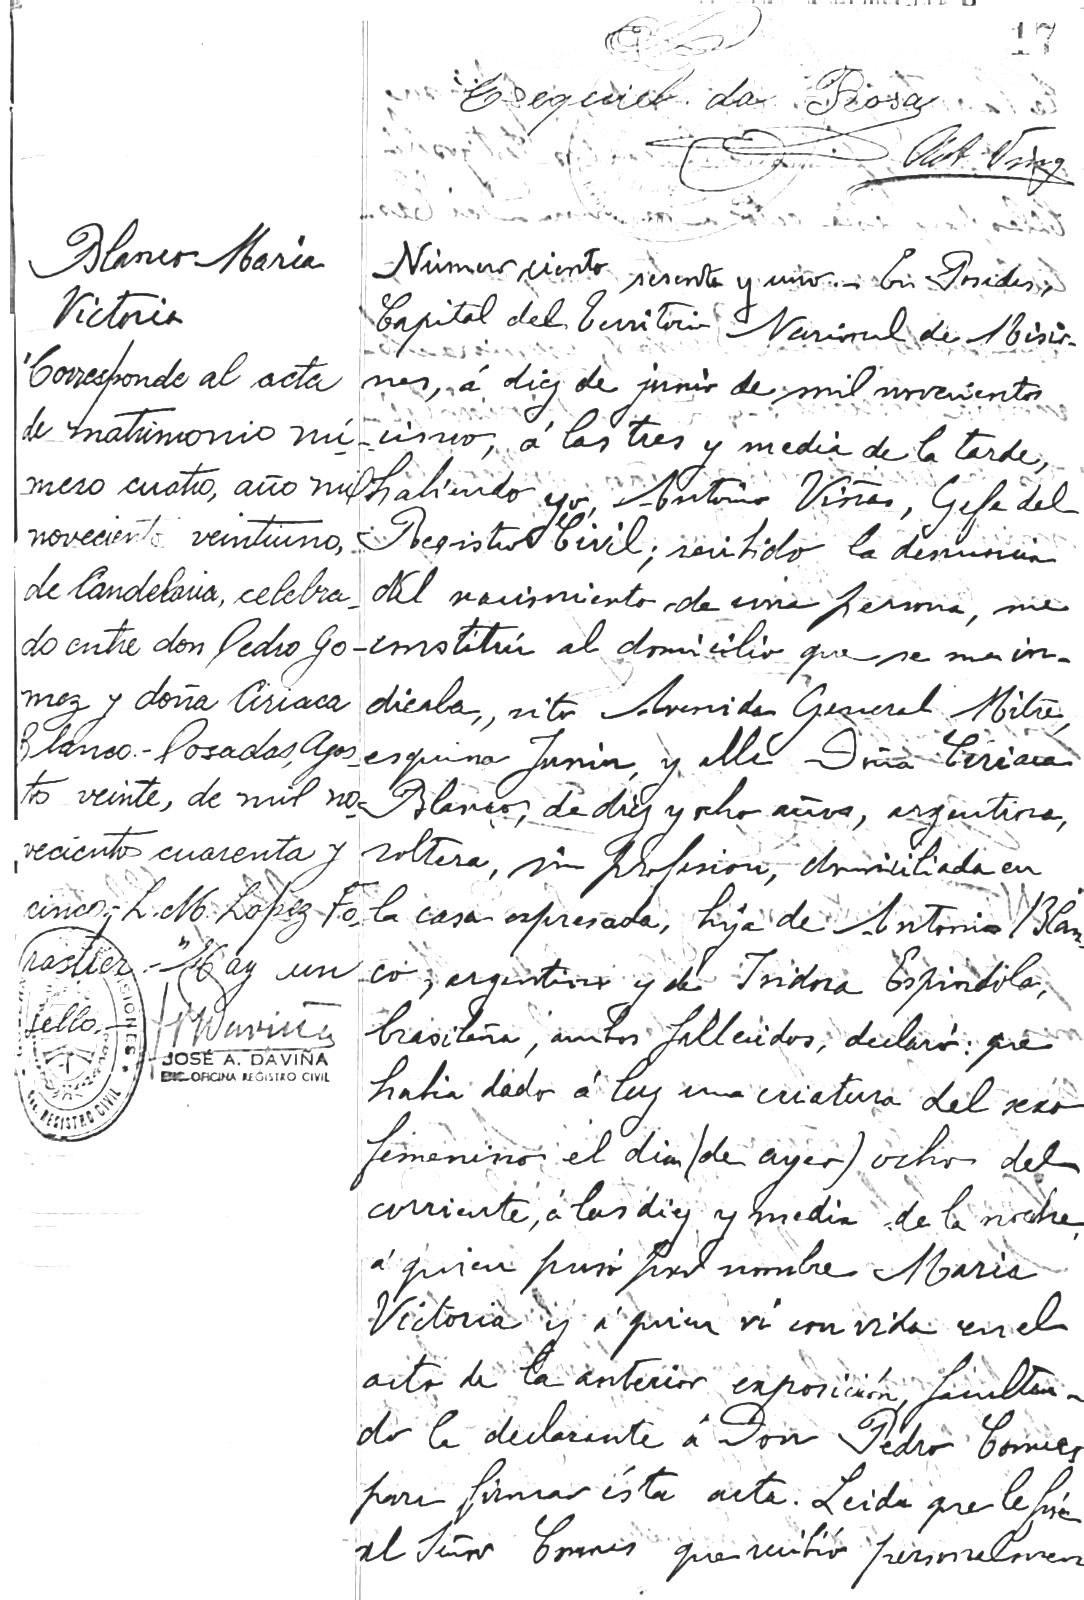 17
Ezequiel da Rosa
Ant Viñas
Blanco María
Victoria
Corresponde al acta
de matrimonio nú-
mero cuatro, año mil
noveciento veintiuno,
de Candelaria, celebra-
do entre don Pedro Go-
mez y doña Ciriaca
Blanco.- Posadas, Agos-
to veinte, de mil no-
vecientos cuarenta y
cinco.- L. M. Lopez Fo-
rastier.- "Hay un
sello.-
JOSÉ A. DAVIÑA
ENC. OFICINA REGISTRO CIVIL
MISIONES
REGISTRO CIVIL
Número ciento sesenta y uno.- En Posadas,
Capital del Territorio Nacional de Misio-
nes, á diez de junio de mil novecientos
cinco, á las tres y media de la tarde,
habiendo yo, Antonio Viñas, Gefe del
Registro Civil; recibido la denuncia
del nacimiento de una persona, me
constituí al domicilio que se me in-
dicaba, sito Avenida General Mitre,
esquina Junin, y allí Doña Ciriaca
Blanco, de diez y ocho años, argentina,
soltera, sin profesion, domiciliada en
la casa espresada, hija de Antonio Blan-
co, argentino y de Isidora Espindola,
brasileña, ambos fallecidos, declaró: que
habia dado á luz una criatura del sexo
femenino el dia (de ayer) ocho del
corriente, á las diez y media de la noche,
á quien puso por nombre María
Victoria y á quien ví con vida en el
acto de la anterior exposición, facultan-
do la declarante á Don Pedro Comes
para firmar ésta acta. Leida que le fué
al Señor Comes que recibió personalmen